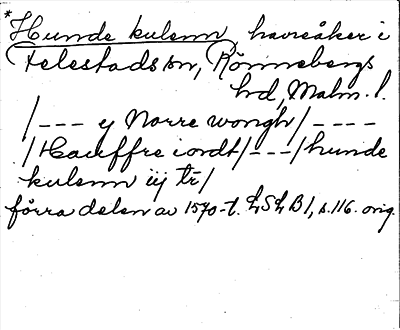 * Hunde kulenn havreåker i
Felestads sn, Rönnebergs
hd, Malm. l.
/--- y Norre wongh/----
/Hauffre iordt/---/hunde
kulenn iij tr/
förra delen av 1570-t. LSLB1, s.116. orig.